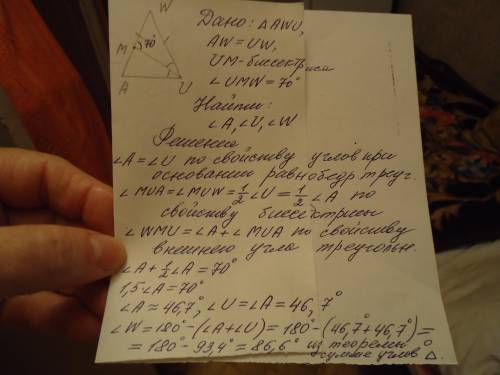 W
M
70°
A
U
Дано: △AWU,
AW = UW,
UM - биссектриса
∠UMW = 70°
Найти:
∠A, ∠U, ∠W
Решение
∠A = ∠U по свойству углов при
основании равнобедр треуг.
∠MUA = ∠MUW = 1/2 ∠U = 1/2 ∠A по
свойству биссектрисы
∠WMU = ∠A + ∠MUA по свойству
внешнего угла треугольн.
∠A + 1/2 ∠A = 70°
1,5 ∠A = 70°
∠A ≈ 46,7°, ∠U = ∠A = 46,7°
∠W = 180° - (∠A + ∠U) = 180° - (46,7° + 46,7°) =
= 180° - 93,4° = 86,6° из теоремы о
сумме углов △.